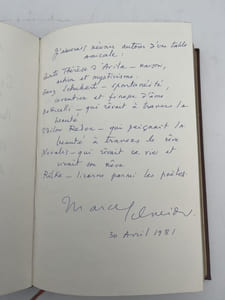 J'aimerais réunir autour d'une table
amicale :
Sainte Thérèse d'Avila — raison,
action et mysticisme
Franz Schubert — spontanéité,
invention et finesse d'âme
Botticelli — qui rêvait à travers la
beauté
Odilon Redon — qui peignait la
beauté à travers le rêve
Novalis — qui rêvait sa vie et
vivait son rêve
Rilke — licorne parmi les poètes.
Marcel Schneider
30 Avril 1981